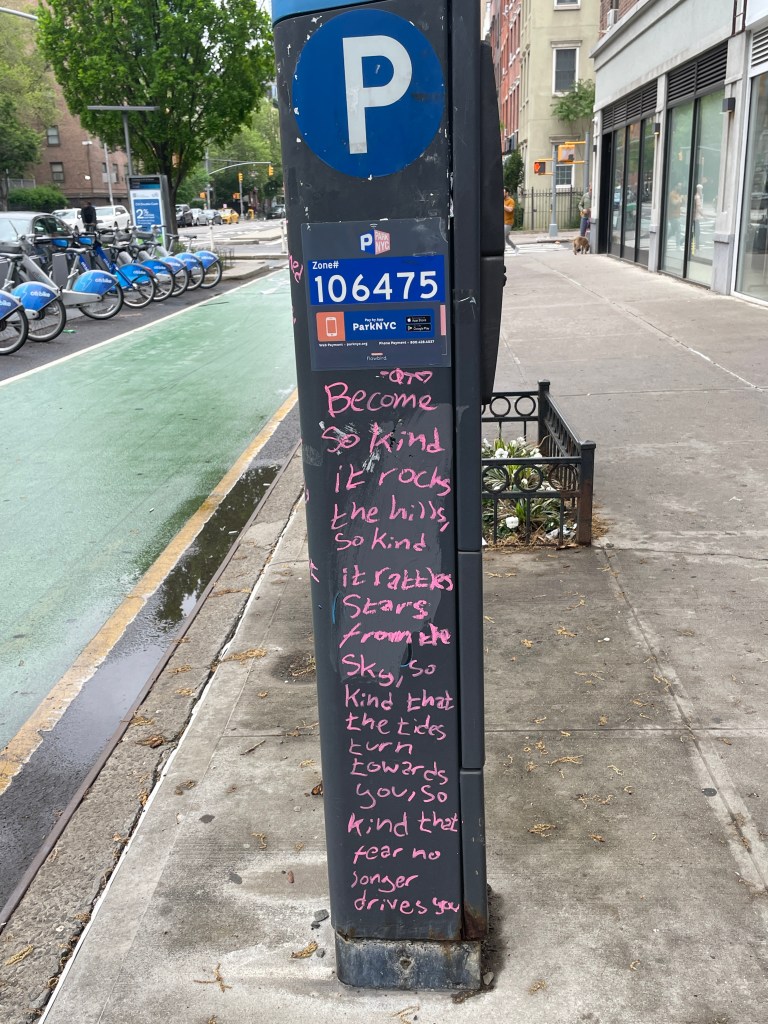 P
P PARK NYC
Zone#
106475
Pay by App
ParkNYC
App Store
Google Play
flowbird
Become
So kind
it rocks
the hills,
So kind
it rattles
Stars
from the
Sky, So
kind that
the tides
turn
towards
you, So
kind that
fear no
longer
drives you
citibike
2